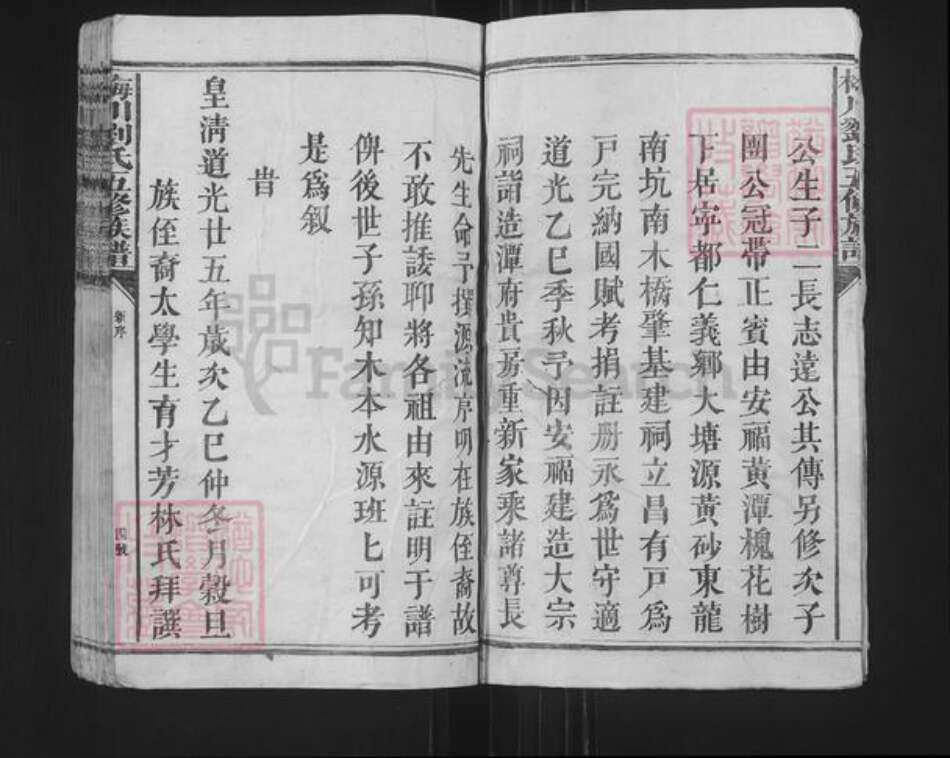 梅川劉氏五修族譜
公生子二長志達公其傳另修次子
團公冠帶正賓由安福黃潭槐花樹
下居寧都仁義鄉大塘源黃砂東龍
南坑南木橋肇基建祠立昌有戸爲
戸完納國賦考捐註册永爲世守適
道光乙巳季秋予因安福建造大宗
祠詣造潭府貴房重新家乘諸尊長
先生命予撰源流序明在族侄裔故
不敢推諉聊將各祖由來註明于譜
俾後世子孫知木本水源班匕可考
是爲叙
旹
皇淸道光廿五年歲次乙巳仲冬月穀旦
族侄裔太學生育才芳林氏拜譔
梅川刘氏五修族譜
新序
四號
FamilySearch